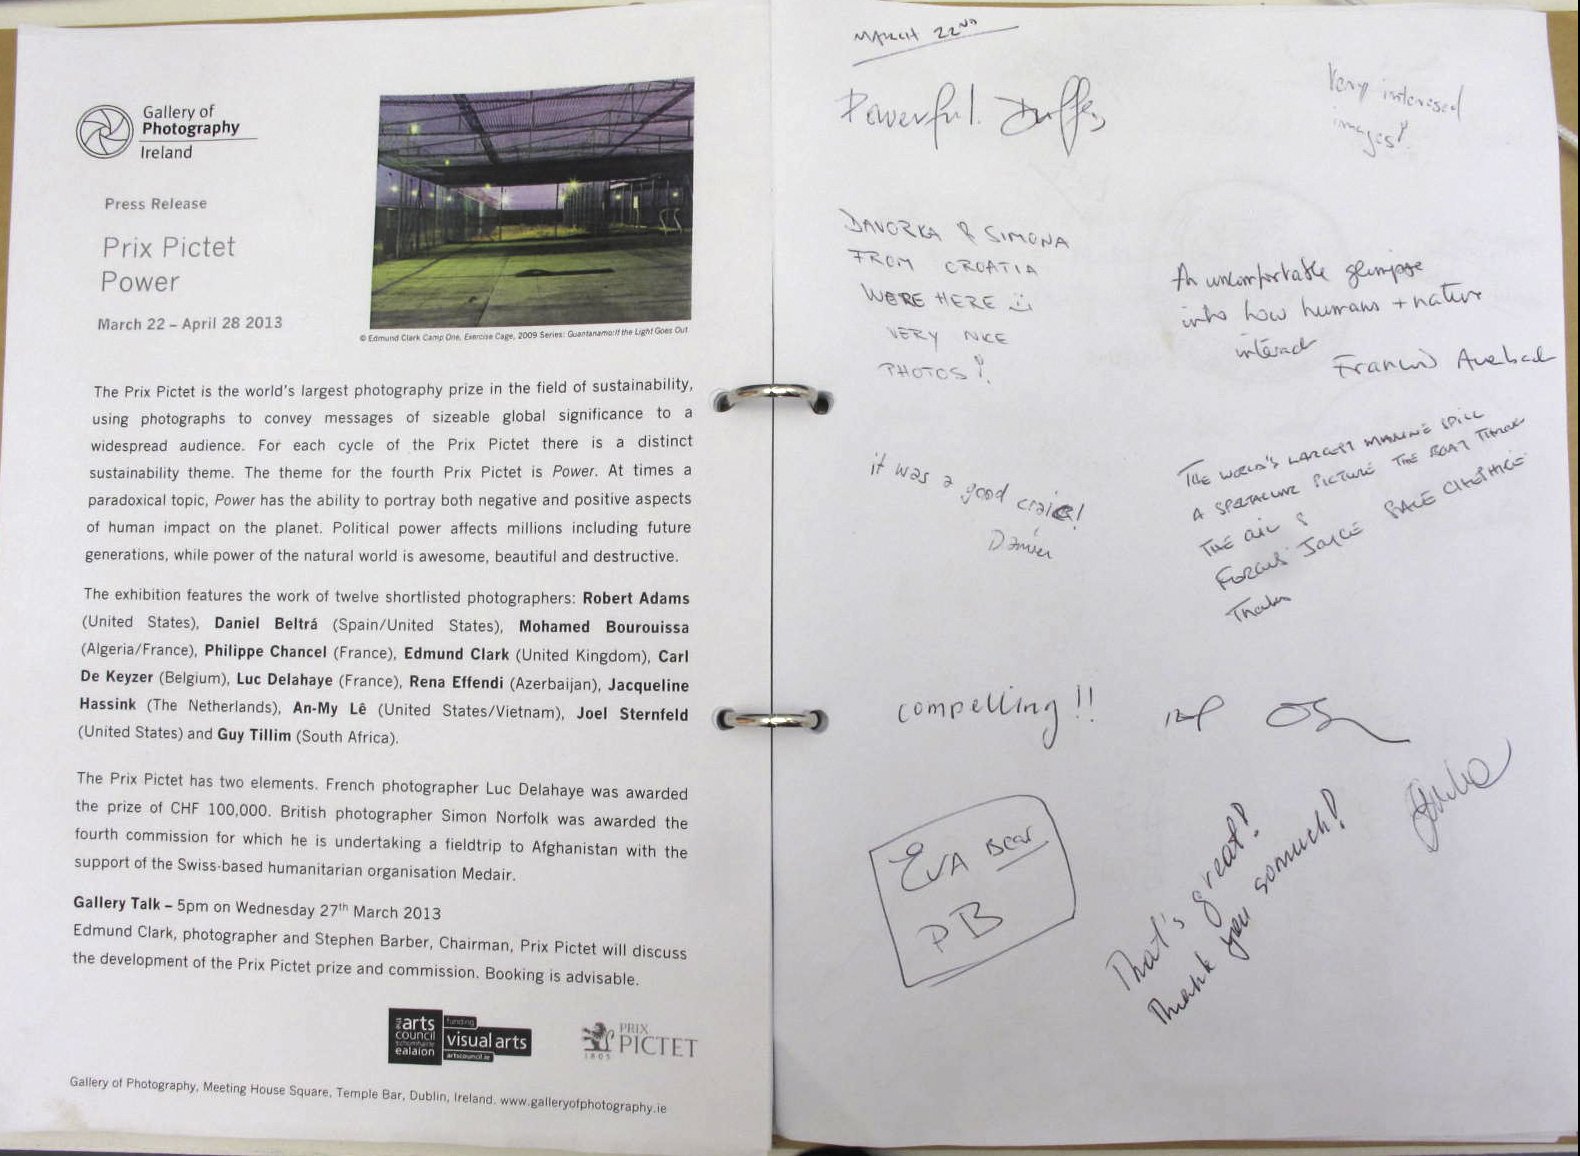 Gallery of
Photography
Ireland
Press Release
Prix Pictet
Power
March 22 – April 28 2013
© Edmund Clark Camp One, Exercise Cage, 2009 Series: Guantanamo: If the Light Goes Out
The Prix Pictet is the world's largest photography prize in the field of sustainability,
using photographs to convey messages of sizeable global significance to a
widespread audience. For each cycle of the Prix Pictet there is a distinct
sustainability theme. The theme for the fourth Prix Pictet is Power. At times a
paradoxical topic, Power has the ability to portray both negative and positive aspects
of human impact on the planet. Political power affects millions including future
generations, while power of the natural world is awesome, beautiful and destructive.
The exhibition features the work of twelve shortlisted photographers: Robert Adams
(United States), Daniel Beltrá (Spain/United States), Mohamed Bourouissa
(Algeria/France), Philippe Chancel (France), Edmund Clark (United Kingdom), Carl
De Keyzer (Belgium), Luc Delahaye (France), Rena Effendi (Azerbaijan), Jacqueline
Hassink (The Netherlands), An-My Lê (United States/Vietnam), Joel Sternfeld
(United States) and Guy Tillim (South Africa).
The Prix Pictet has two elements. French photographer Luc Delahaye was awarded
the prize of CHF 100,000. British photographer Simon Norfolk was awarded the
fourth commission for which he is undertaking a fieldtrip to Afghanistan with the
support of the Swiss-based humanitarian organisation Medair.
Gallery Talk – 5pm on Wednesday 27th March 2013
Edmund Clark, photographer and Stephen Barber, Chairman, Prix Pictet will discuss
the development of the Prix Pictet prize and commission. Booking is advisable.
arts
council
ealaíon
funding
visual arts
artscouncil.ie
PRIX
PICTET
1805
Gallery of Photography, Meeting House Square, Temple Bar, Dublin, Ireland. www.galleryofphotography.ie
MARCH 22ND
Powerful.
Very interesed
images!
DAVORKA & SIMONA
FROM CROATIA
WERE HERE
VERY NICE
PHOTOS!
An uncomfortable glimpse
into how humans + nature
interact
it was a good craic!
THE WORLD'S LARGEST MARINE SPILL
A SPECTACULAR PICTURE THE BOAT THROU
THE OIL &
JOYCE
Thanks
compelling!!
EVA Bear
PB
That's great!
Thank you somuch!